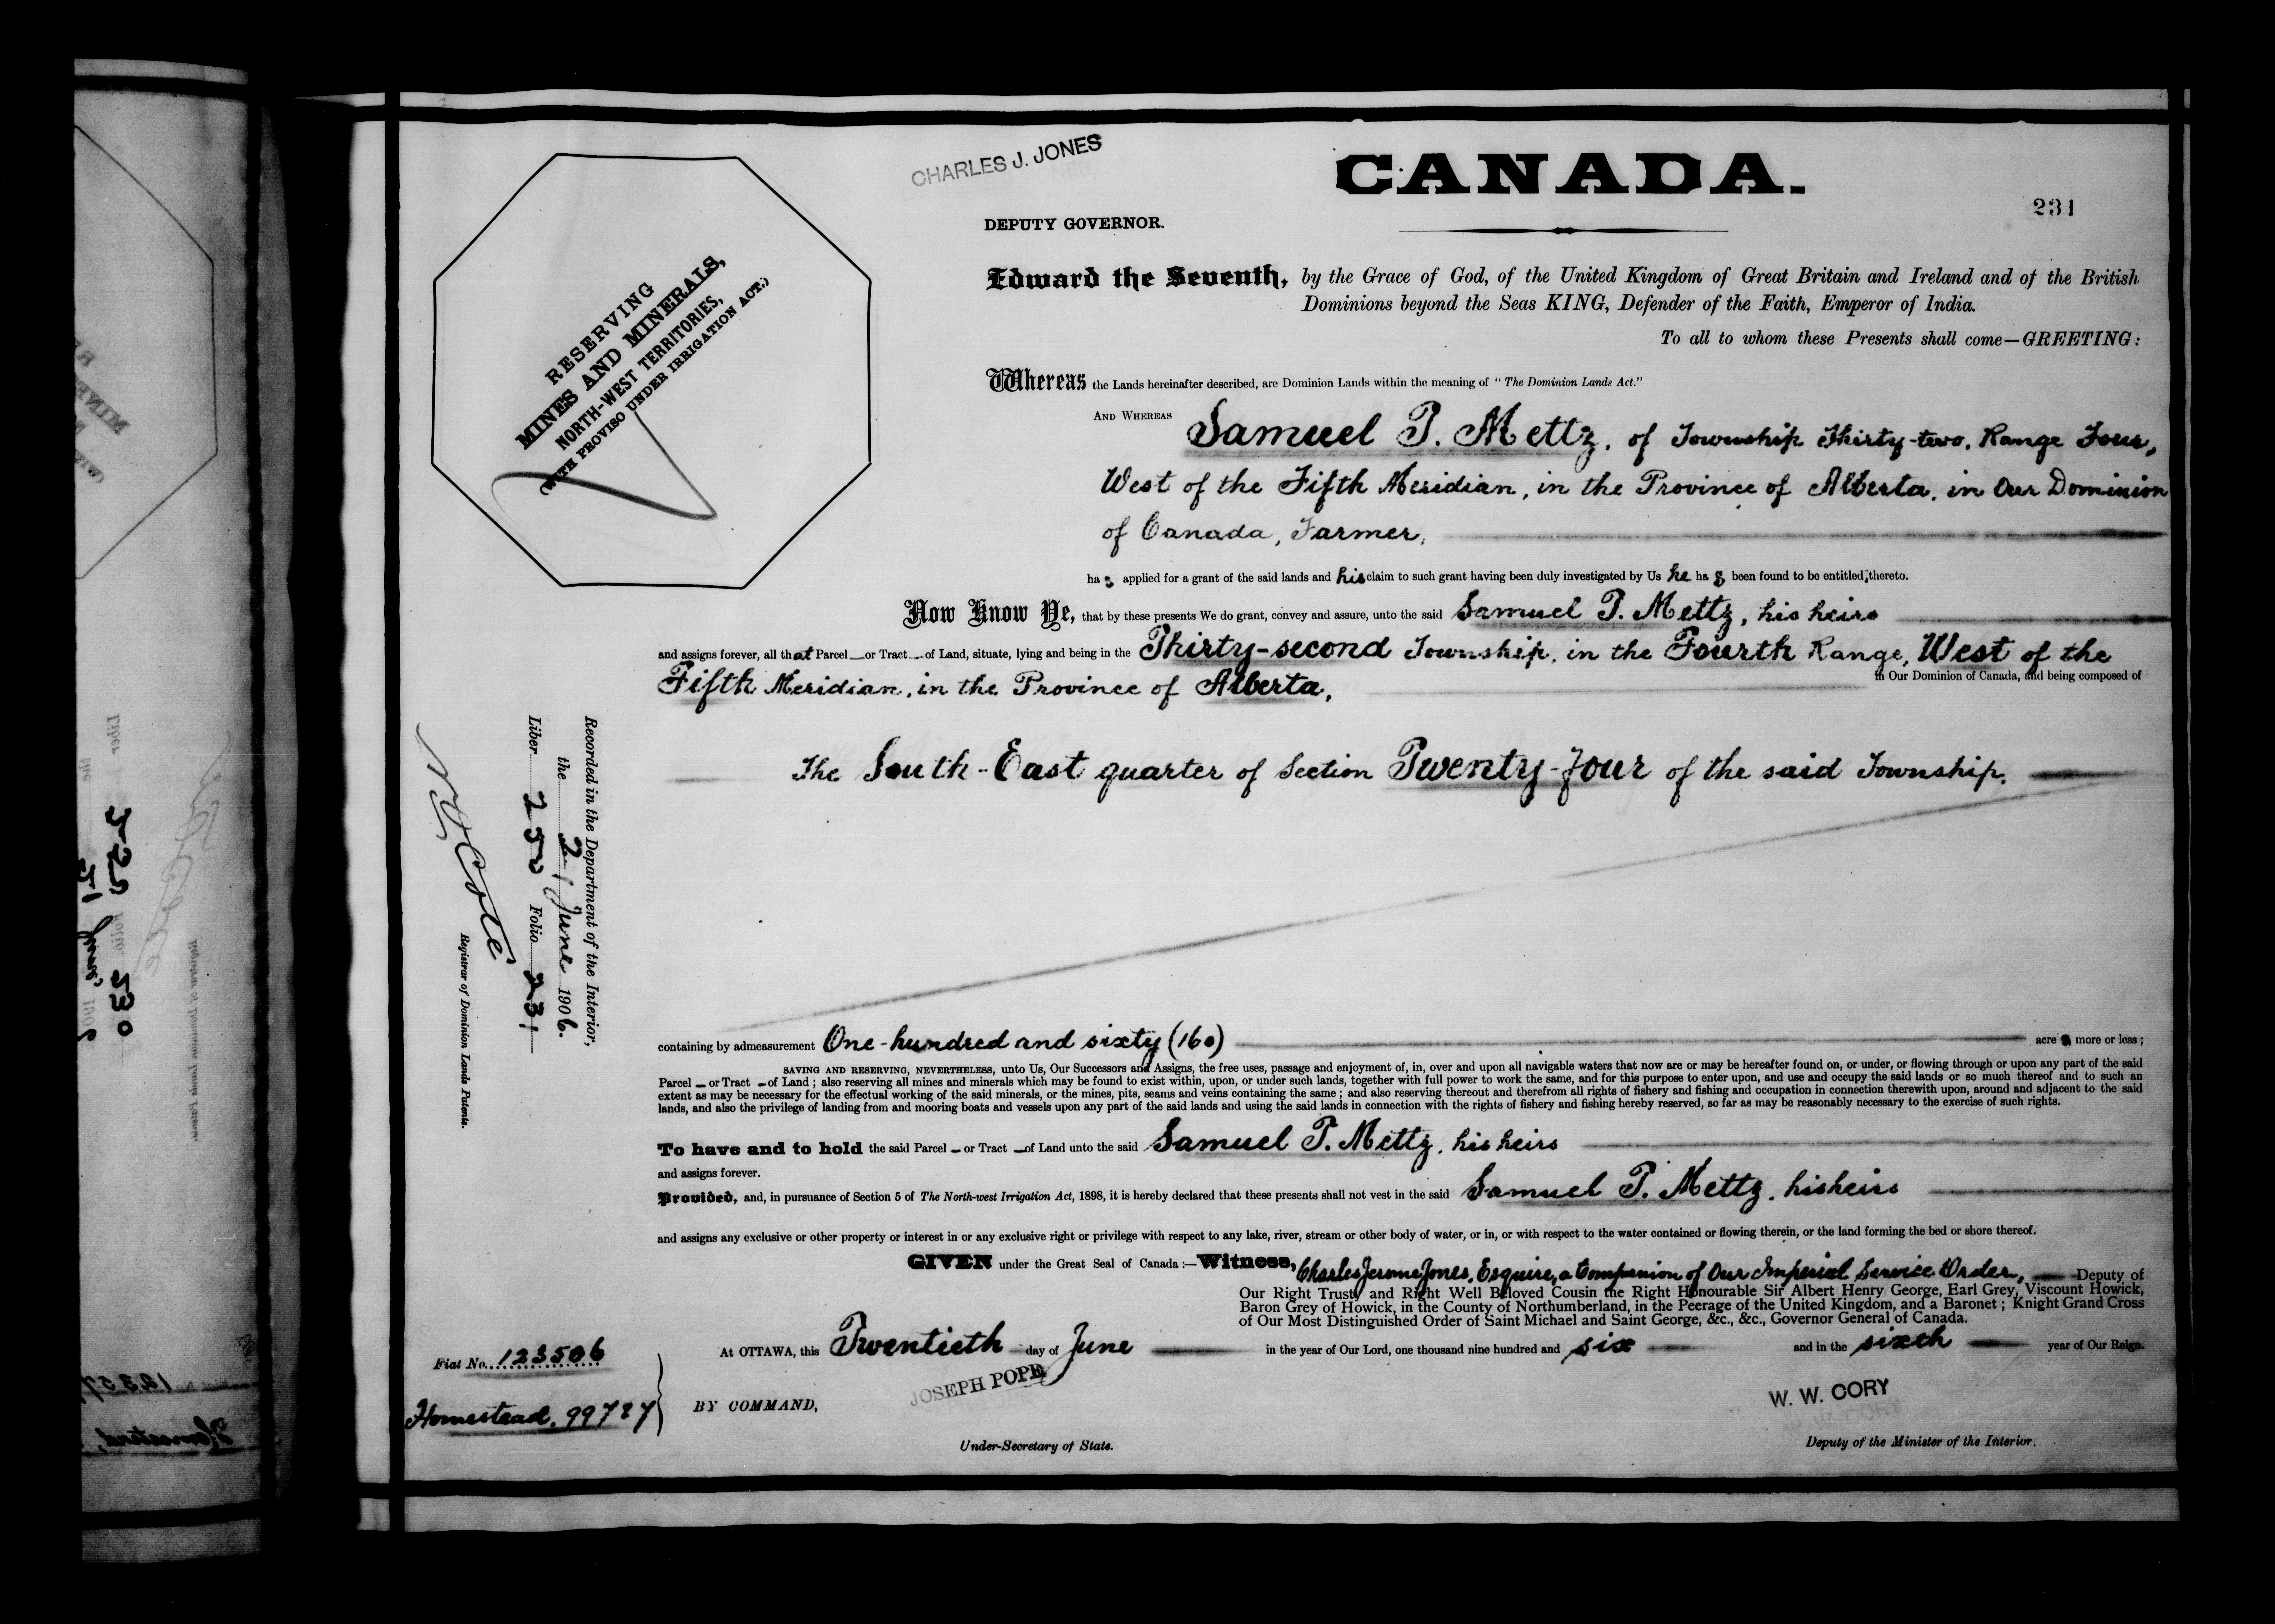 CHARLES J. JONES
CANADA.
231
DEPUTY GOVERNOR.
RESERVING
MINES AND MINERALS,
NORTH-WEST TERRITORIES,
(WITH PROVISO UNDER IRRIGATION ACT.)
Edward the Seventh, by the Grace of God, of the United Kingdom of Great Britain and Ireland and of the British
Dominions beyond the Seas KING, Defender of the Faith, Emperor of India.
To all to whom these Presents shall come—GREETING:
Whereas the Lands hereinafter described, are Dominion Lands within the meaning of "The Dominion Lands Act."
AND WHEREAS Samuel P. Mettz, of Township Thirty-two, Range Four,
West of the Fifth Meridian, in the Province of Alberta, in Our Dominion
of Canada, Farmer,
has applied for a grant of the said lands and his claim to such grant having been duly investigated by Us he has been found to be entitled thereto.
Now Know Ye, that by these presents We do grant, convey and assure, unto the said Samuel P. Mettz, his heirs
and assigns forever, all that Parcel or Tract of Land, situate, lying and being in the Thirty-second Township, in the Fourth Range, West of the
Fifth Meridian, in the Province of Alberta, in Our Dominion of Canada, and being composed of
The South-East quarter of Section Twenty-four of the said Township.
Recorded in the Department of the Interior,
the 21 June 1906.
Liber 250 Folio 231
N O Coté
Registrar of Dominion Lands Patents.
containing by admeasurement One-hundred and sixty (160) acres more or less;
SAVING AND RESERVING, NEVERTHELESS, unto Us, Our Successors and Assigns, the free uses, passage and enjoyment of, in, over and upon all navigable waters that now are or may be hereafter found on, or under, or flowing through or upon any part of the said
Parcel or Tract of Land; also reserving all mines and minerals which may be found to exist within, upon, or under such lands, together with full power to work the same, and for this purpose to enter upon, and use and occupy the said lands or so much thereof and to such an
extent as may be necessary for the effectual working of the said minerals, or the mines, pits, seams and veins containing the same; and also reserving thereout and therefrom all rights of fishery and fishing and occupation in connection therewith upon, around and adjacent to the said
lands, and also the privilege of landing from and mooring boats and vessels upon any part of the said lands and using the said lands in connection with the rights of fishery and fishing hereby reserved, so far as may be reasonably necessary to the exercise of such rights.
To have and to hold the said Parcel or Tract of Land unto the said Samuel P. Mettz, his heirs
and assigns forever.
Provided, and, in pursuance of Section 5 of The North-west Irrigation Act, 1898, it is hereby declared that these presents shall not vest in the said Samuel P. Mettz, his heirs
and assigns any exclusive or other property or interest in or any exclusive right or privilege with respect to any lake, river, stream or other body of water, or in, or with respect to the water contained or flowing therein, or the land forming the bed or shore thereof.
GIVEN under the Great Seal of Canada:—Witness, Charles Jerome Jones, Esquire, a Companion of Our Imperial Service Order, Deputy of
Our Right Trusty and Right Well Beloved Cousin the Right Honourable Sir Albert Henry George, Earl Grey, Viscount Howick,
Baron Grey of Howick, in the County of Northumberland, in the Peerage of the United Kingdom, and a Baronet; Knight Grand Cross
of Our Most Distinguished Order of Saint Michael and Saint George, &c., &c., Governor General of Canada.
At OTTAWA, this Twentieth day of June in the year of Our Lord, one thousand nine hundred and six and in the sixth year of Our Reign.
Fiat No. 123506
Homestead. 99787
BY COMMAND,
JOSEPH POPE
Under-Secretary of State.
W. W. CORY
Deputy of the Minister of the Interior.